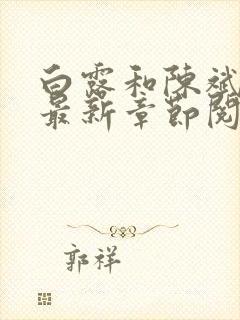 白露和陳斌
最新章節閱
郭祥